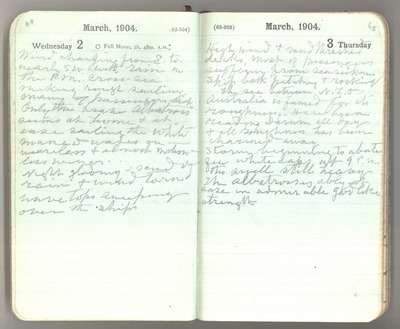 March, 1904.
(62-304)
Wednesday 2
Full Moon, 2h. 48m. A.M.
Wind changing from S. to
nearly S.W. with rain in
the P.M. Cross sea
making rough sailing
many of passengers sick
Only the huge albatross
seems at home & at
ease sailing the wild
waves on
wearless & almost motion
less wings.
Night gloomy, and
rain & wind torn
wave tops sweeping
over the ships
(63-303)
March, 1904.
3 Thursday
High wind & sand
decks, most of passengers
suffering from seasickness
Ship both pitching & rocking
The sea between N.Z. &
Australia is famed for its
roughness. Have been
reading Darwin all day
& all roughness has been
charmed away
Storm beginning to abate
few white caps at 9 P.M.
tho swell still heavy
The albatrosses ably at
ease in admirable god like
strength